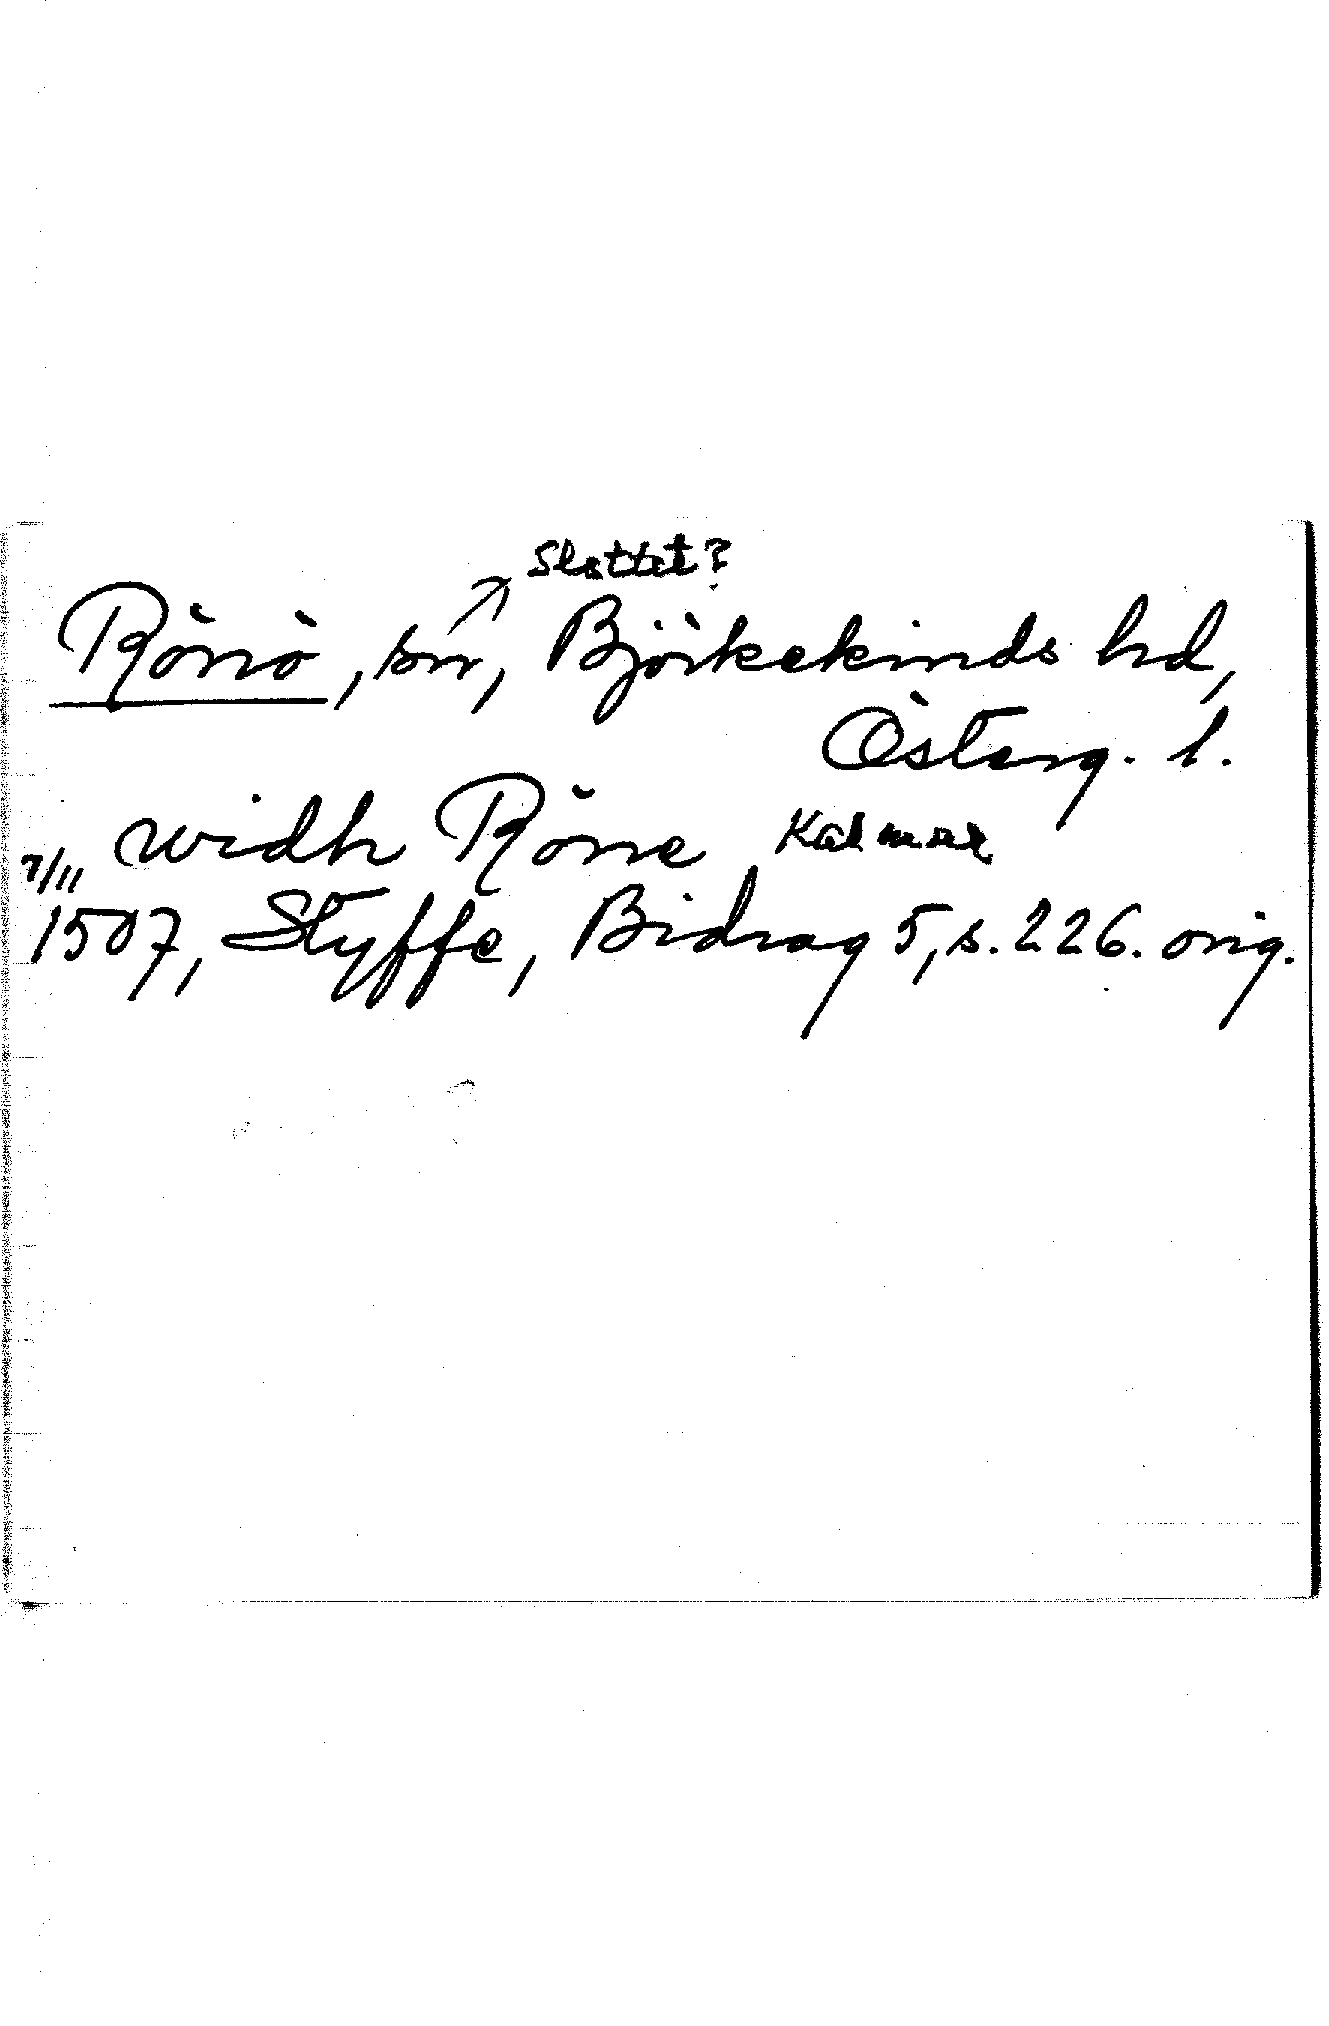 Slottet?
Rönö, sn, Björkekinds hd,
Österg. l.
widh Röne Kalmar
7/11
1507, Styffe, Bidrag 5, s. 226. orig.